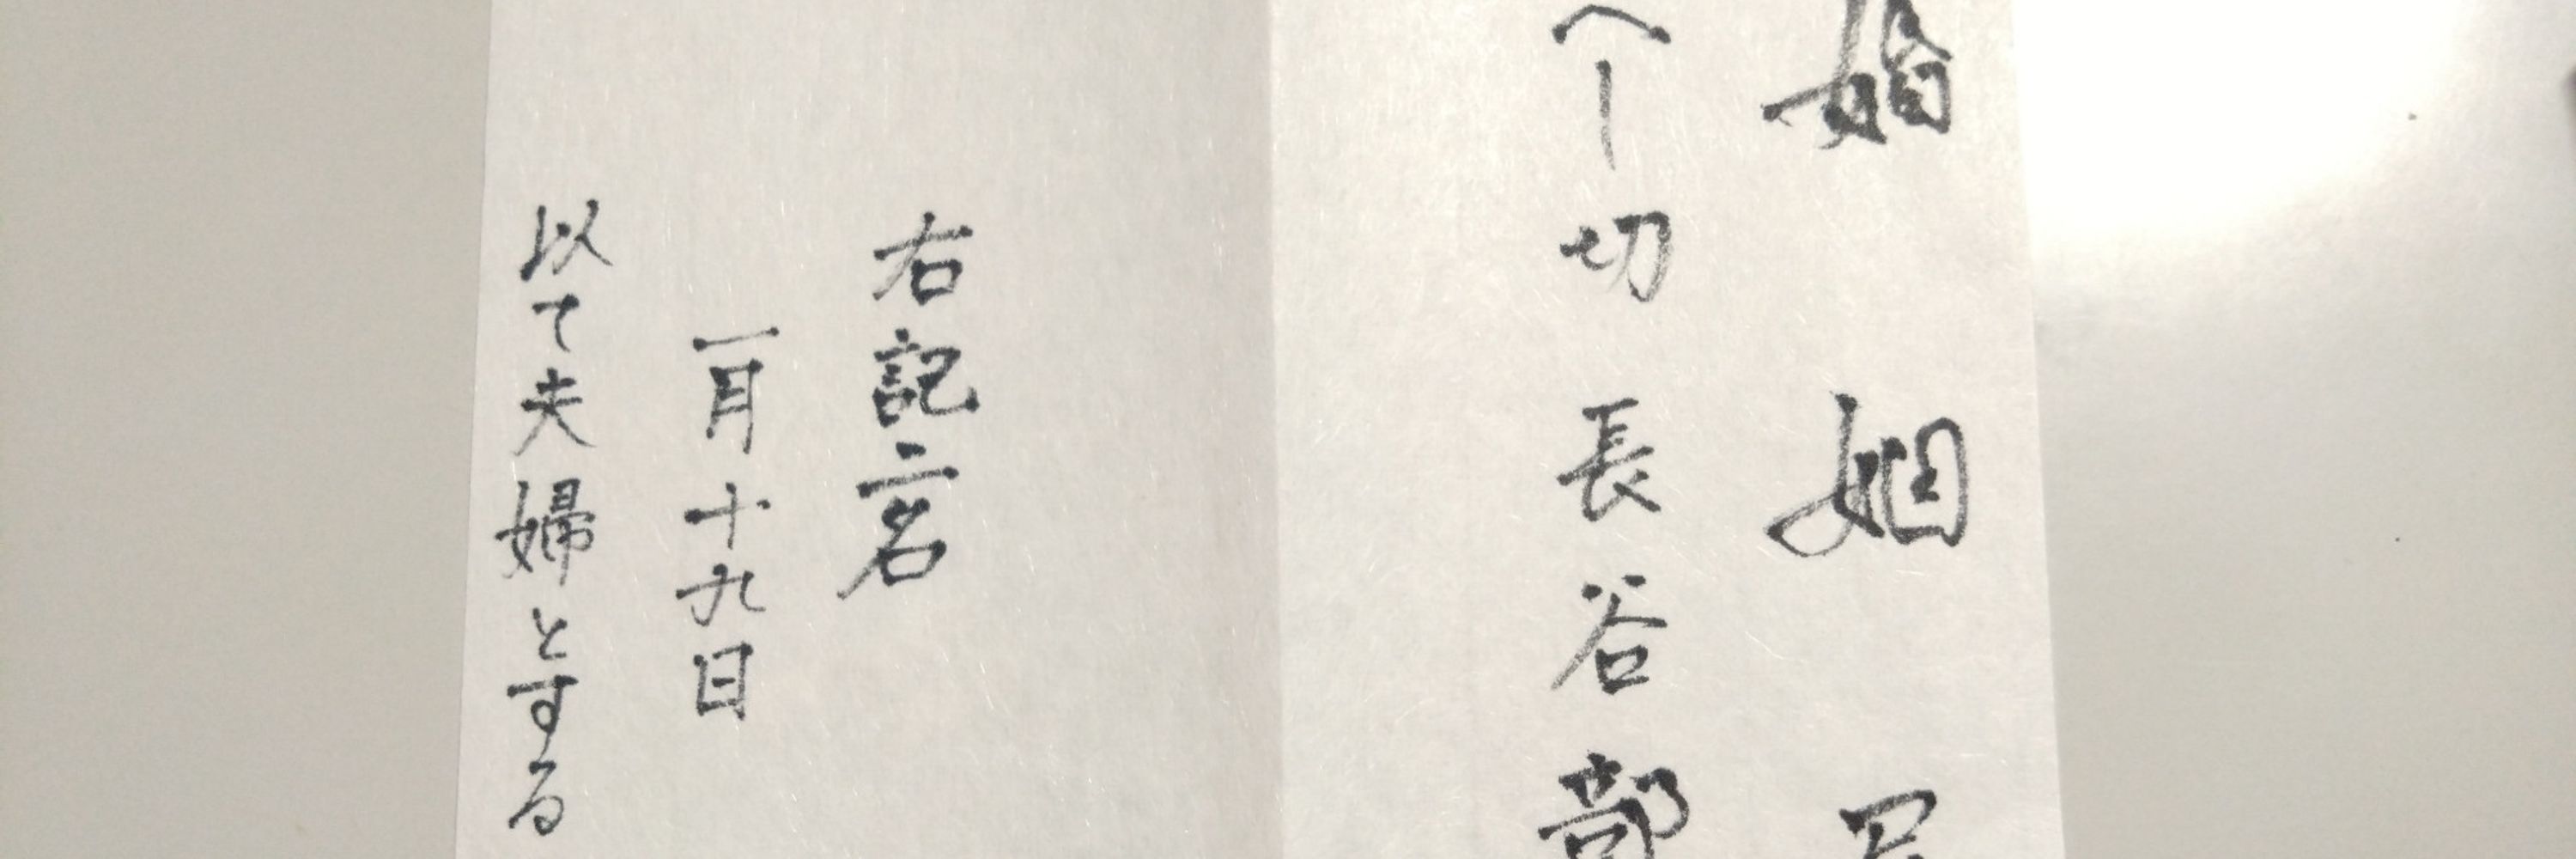 婚姻
へし切長谷部
右記二名
一月十九日
以て夫婦とする